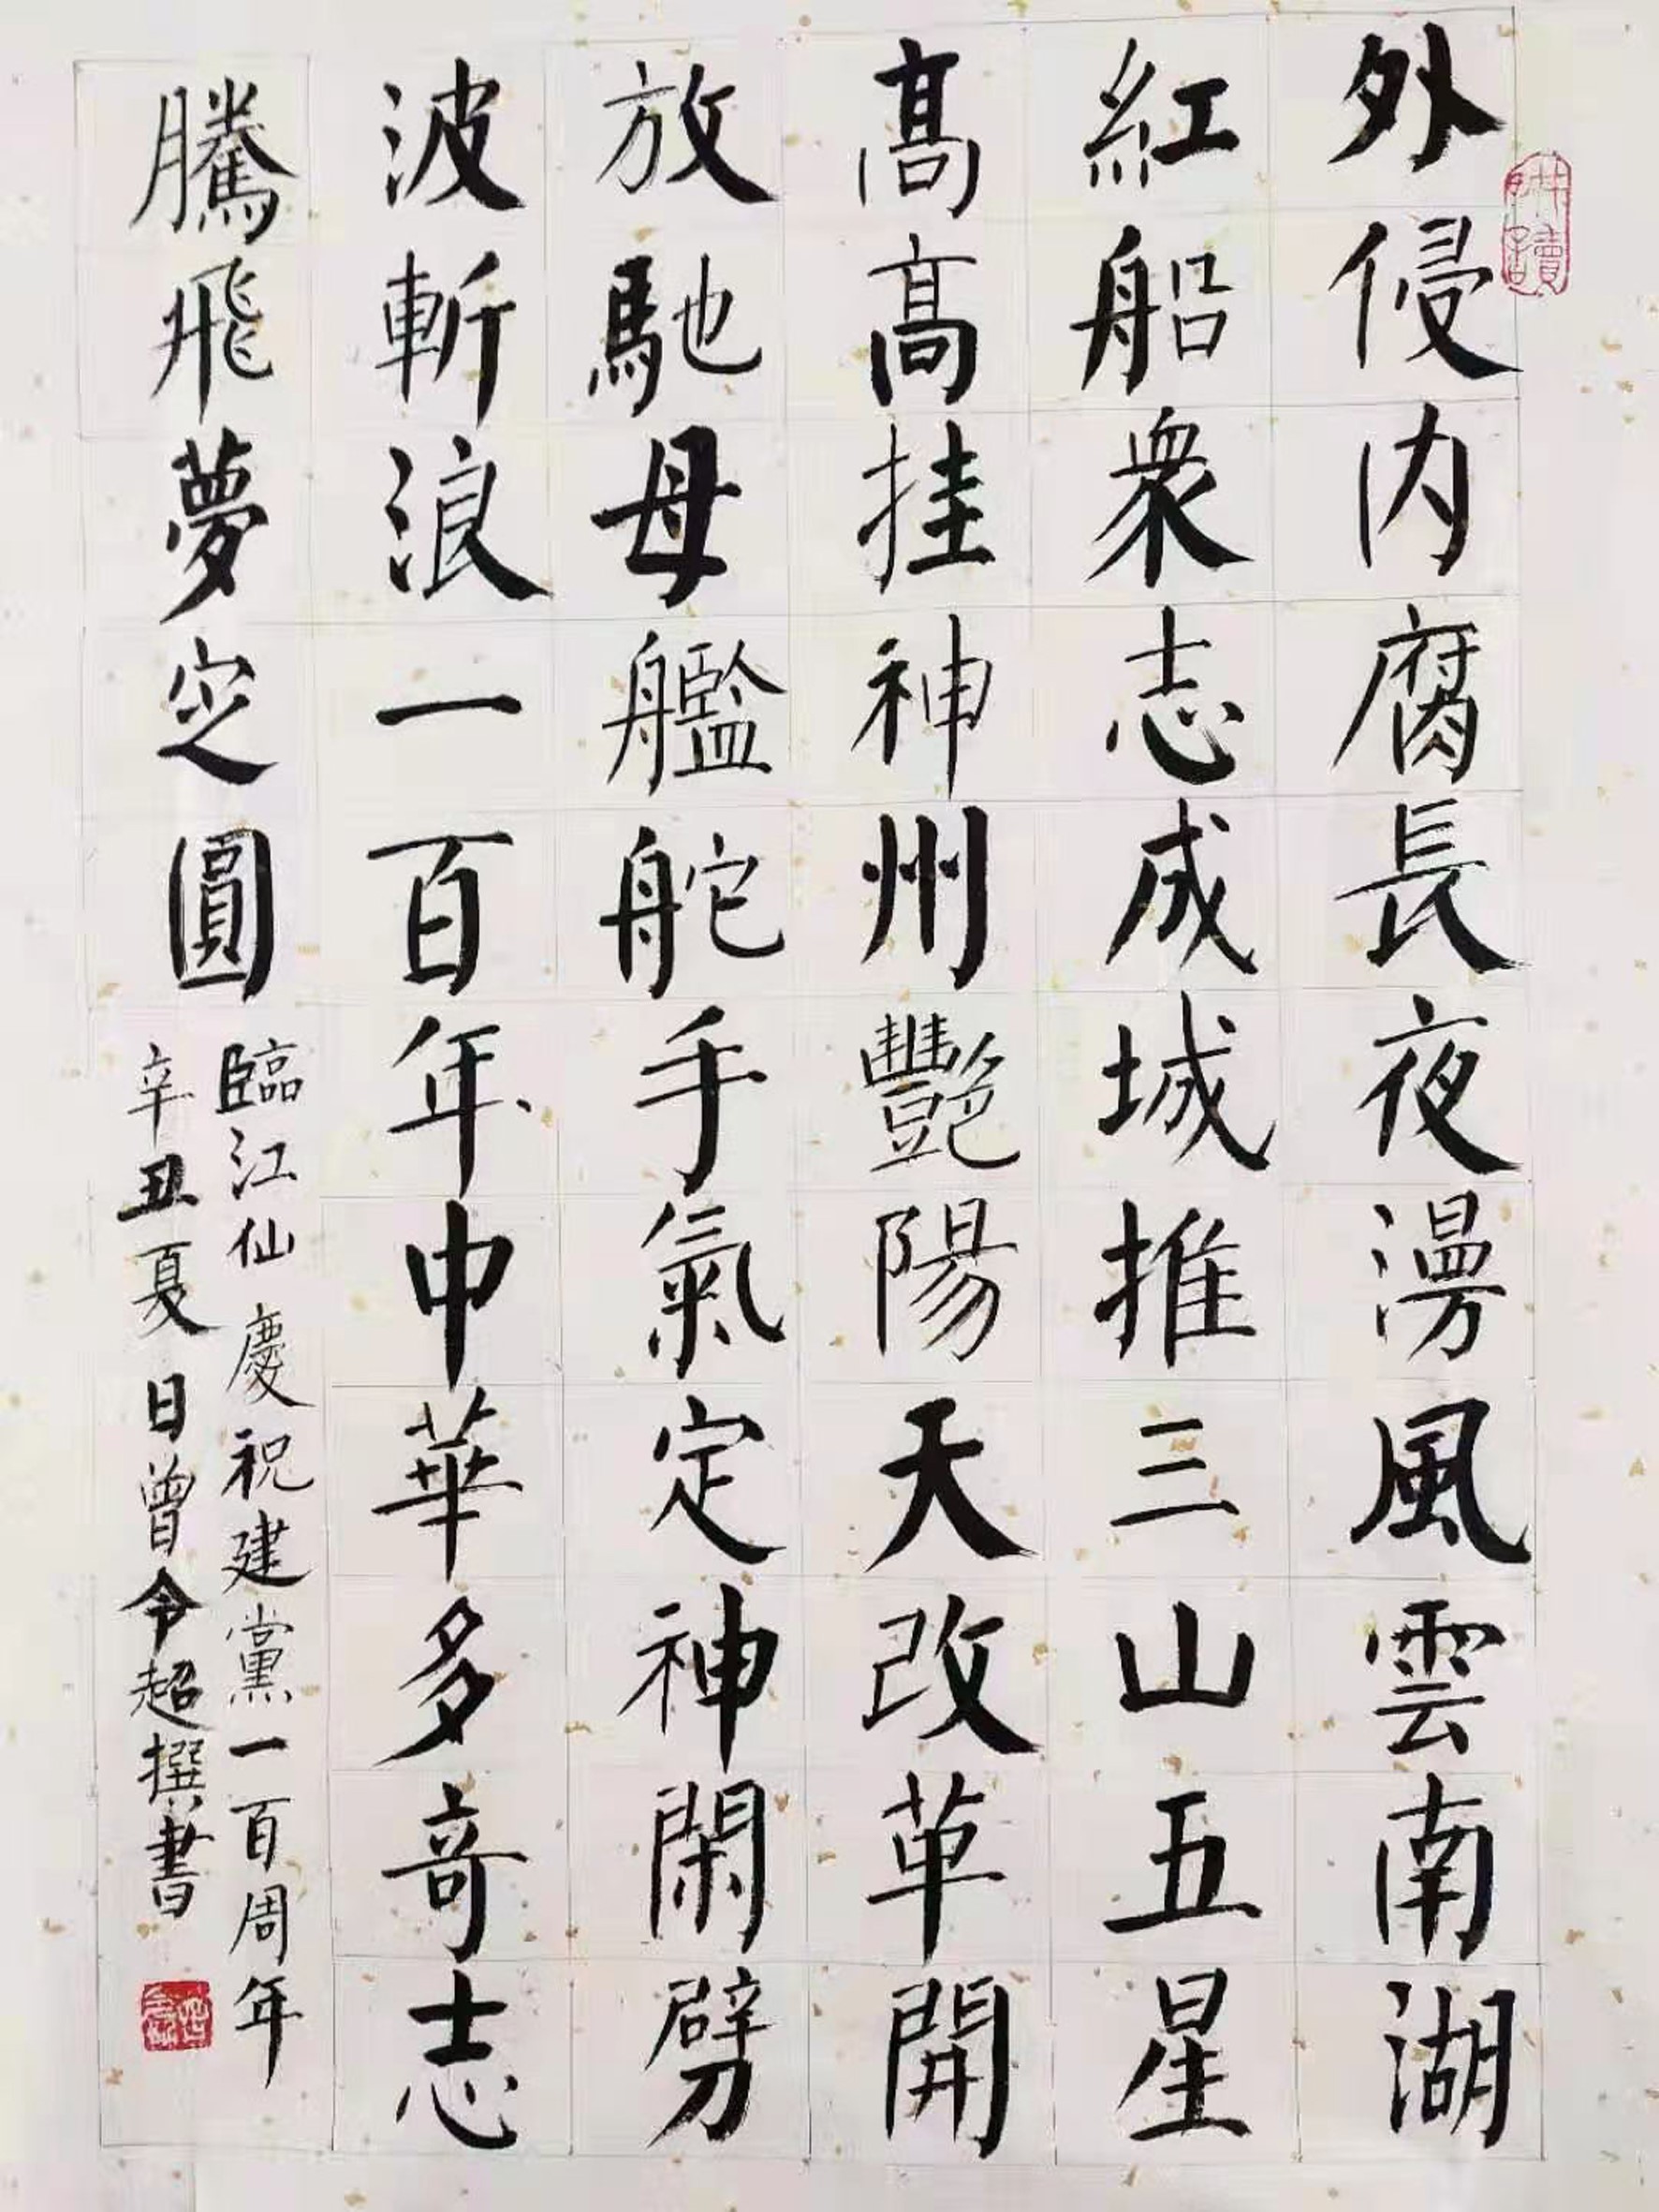 外侵内腐長夜漫風雲南湖
紅船衆志成城推三山五星
高高挂神州艷陽天改革開
放馳母艦舵手氣定神閑劈
波斬浪一百年中華多奇志
騰飛夢定圓
臨江仙慶祝建黨一百周年
辛丑夏日曾令超撰書